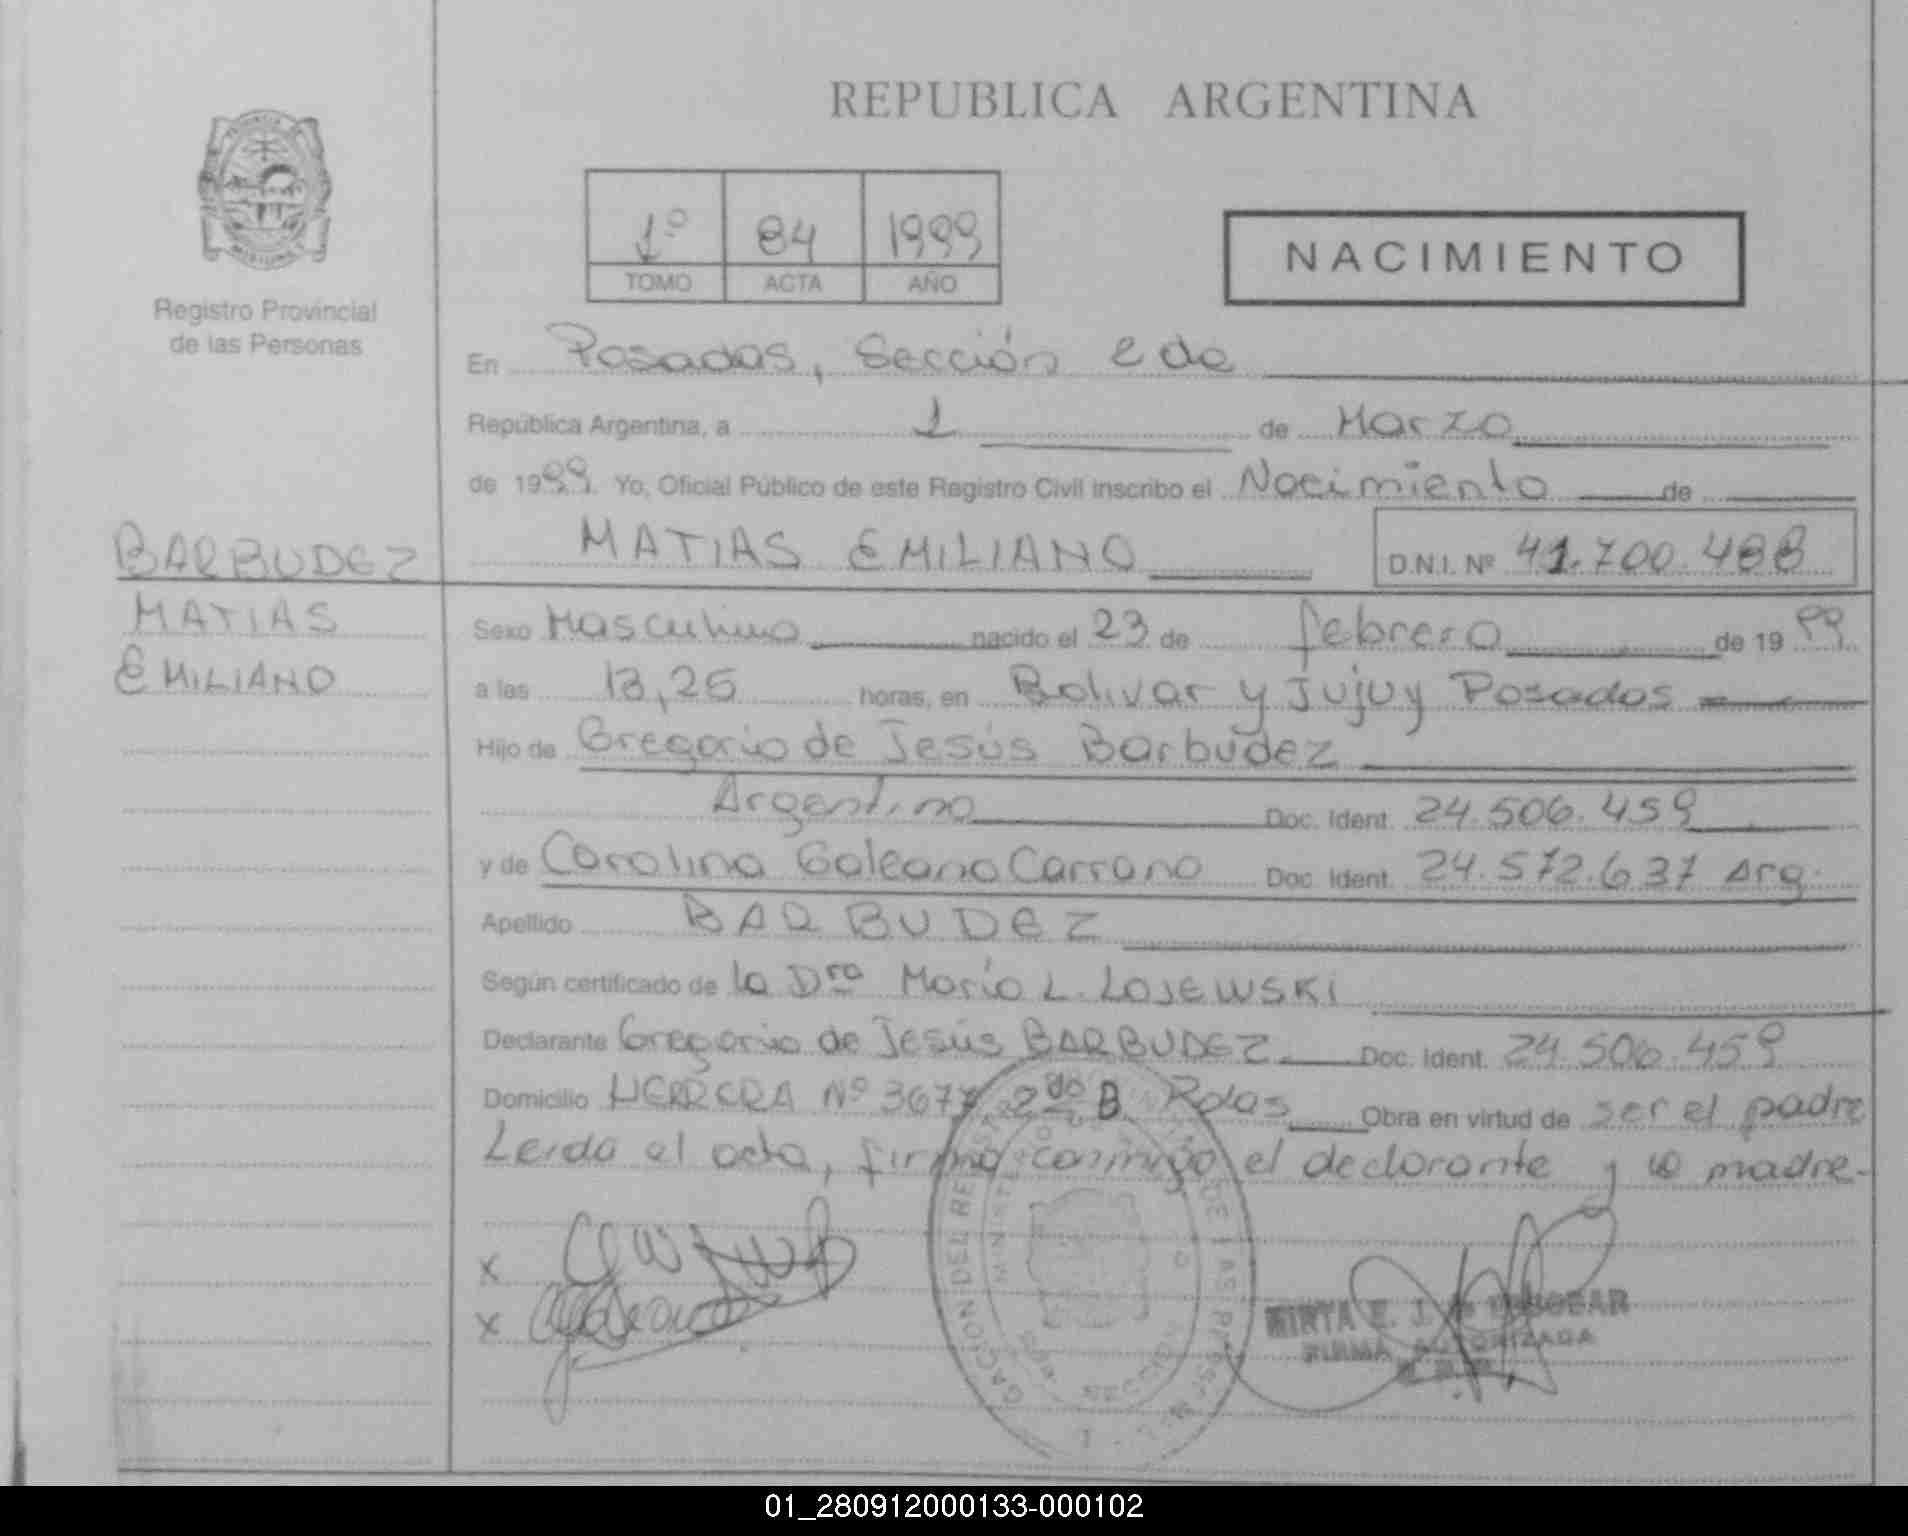 REPUBLICA ARGENTINA
1º 84 1999
TOMO ACTA AÑO
NACIMIENTO
Registro Provincial
de las Personas
En Posadas, Sección 2da
República Argentina, a 1 de Marzo
de 1999. Yo, Oficial Público de este Registro Civil inscribo el Nacimiento de
BARBUDEZ
MATIAS
EMILIANO
MATIAS EMILIANO D.N.I. Nº 41.700.488
Sexo Masculino nacido el 23 de febrero de 1999
a las 13,25 horas, en Bolivar y Jujuy Posadas
Hijo de Gregorio de Jesús Barbudez
Argentino Doc. Ident. 24.506.459
y de Carolina Galeano Carrano Doc. Ident. 24.572.637 Arg.
Apellido BARBUDEZ
Según certificado de la Dra María L. LOJEWSKI
Declarante Gregorio de Jesús BARBUDEZ Doc. Ident. 24.506.459
Domicilio HERRERA Nº 3677 2do B Pdas Obra en virtud de ser el padre
Leida el acta, firma conmigo el declarante y la madre-
x
x
MIRTA E. J. ESCOBAR
FIRMA AUTORIZADA
SECCION
01_280912000133-000102